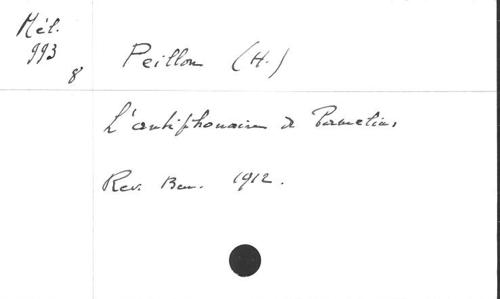 Mél.
993
8
Peillon (H.)
L'antiphonaire de Pamelius
Rev. Ben. 1912.